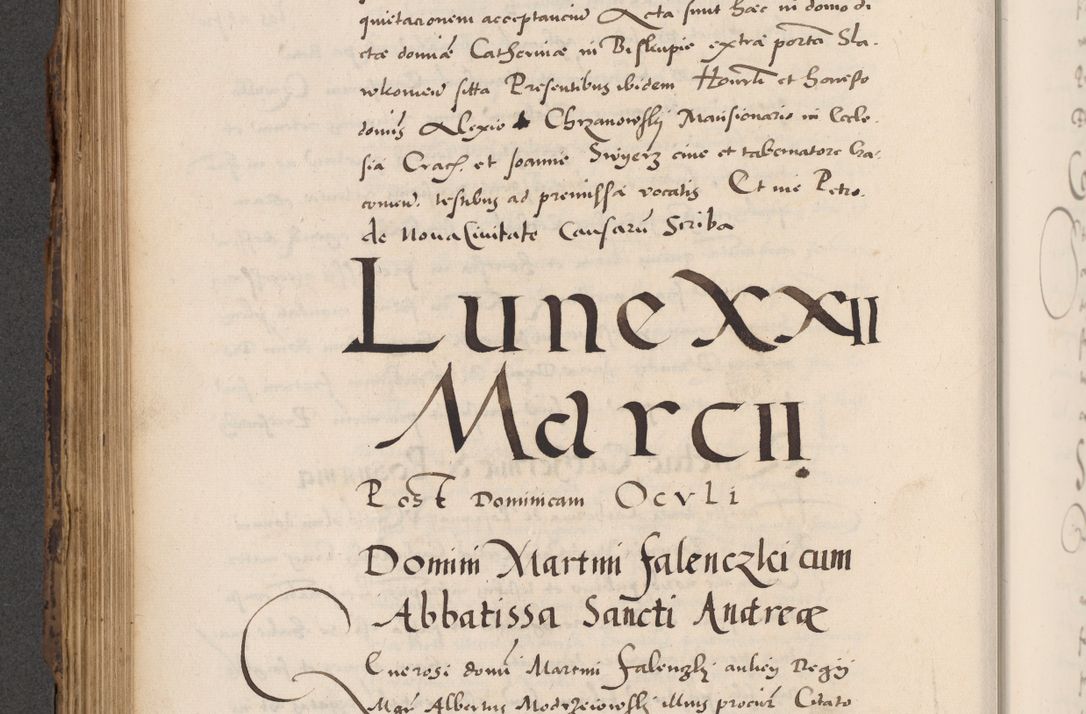 quietacionem acceptanciũ Acta sunt haec in domo di
ctae dominae Catherinae in Biskupie extra portã Sla-
wkowieñ sitta Presentibus ibidem Honorabli et honesto
dominis Alexio Chrzanowsky Mansionario in Eccle-
sia Crac. et Joanne Swyerz cive et tabernatore Cra-
covieñ. testibus ad premissa vocatis Et me Petro
de Nova Civitate Causarũ Scriba
Lune XXII
Marcii
Post Dominicam Oculi
Domini Martini Falenczki cum
Abbatissa Sancti Andreae
Querosi domini Martini Falenczky aulici Regii
Mag. Albertus Modrzeiowsky illius procur. Citato